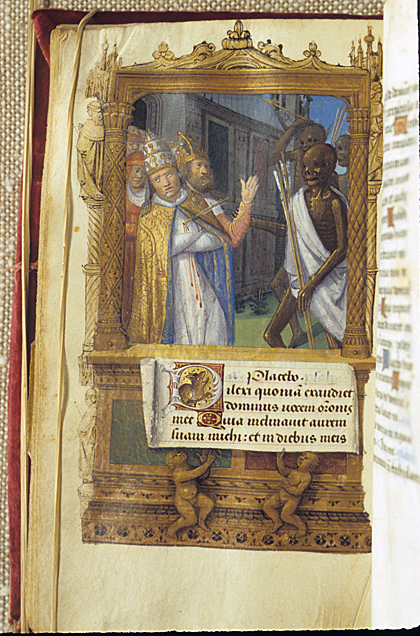 Placebo.
Dilexi quoniā exaudiet
dominus vocem or̄onis
mee Quia inclinauit aurem
suam michi: et in diebus meis